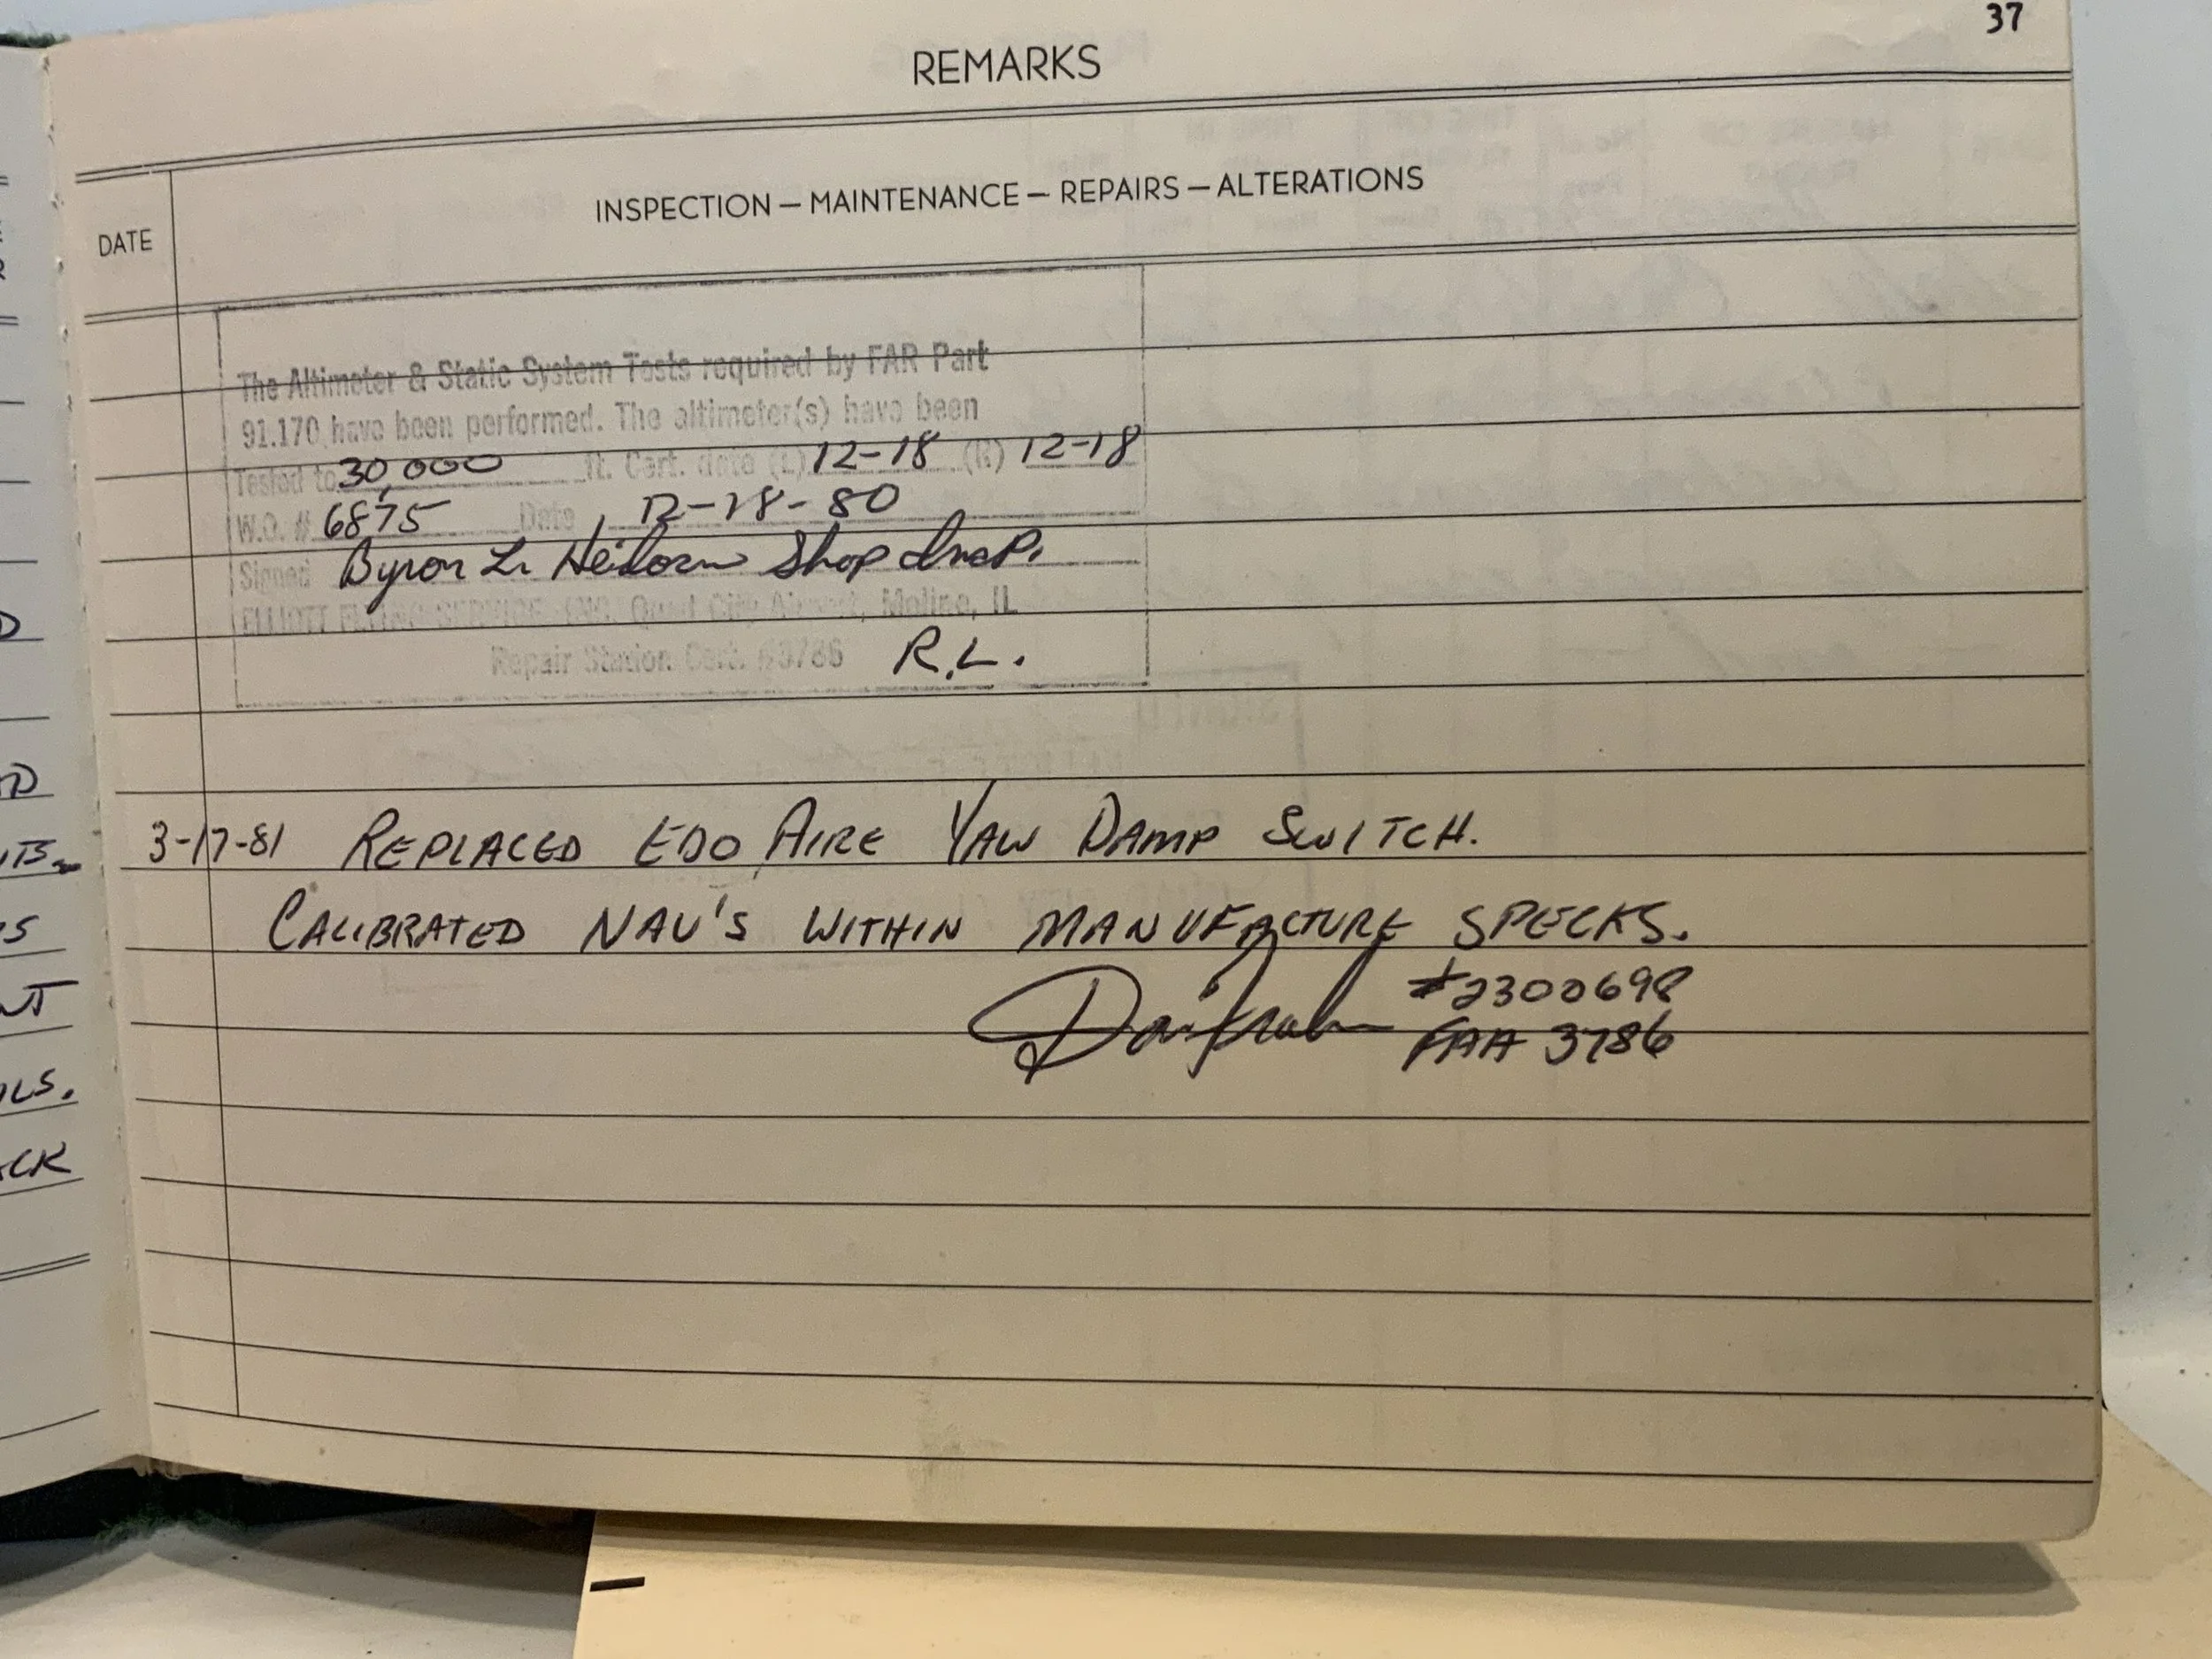 37
REMARKS
DATE
INSPECTION — MAINTENANCE — REPAIRS — ALTERATIONS
The Altimeter & Static System Tests required by FAR Part
91.170 have been performed. The altimeter(s) have been
Tested to 30,000 ft. Cert. date (L) 12-18 (R) 12-18
W.O. # 6875 Date 12-18-80
Signed Byron L. Shop Insp.
ELLIOTT FLYING SERVICE INC. Quad City Airport, Moline, IL
Repair Station Cert. #3786 R.L.
3-17-81 REPLACED EDO AIRE YAW DAMP SWITCH.
CALIBRATED NAV'S WITHIN MANUFACTURE SPECKS.
#2300698
FAA 3786
D
D
S
NT
LS.
CK